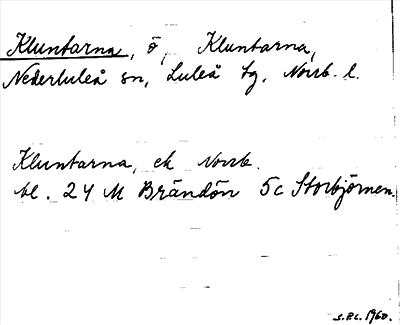 Kluntarna, ö, Kluntarna,
Nederluleå sn, Luleå tg, Norrb. l.
Kluntarna, ek Norrb.
bl. 24 M Brändön 5c Storbjörnen.
1960.